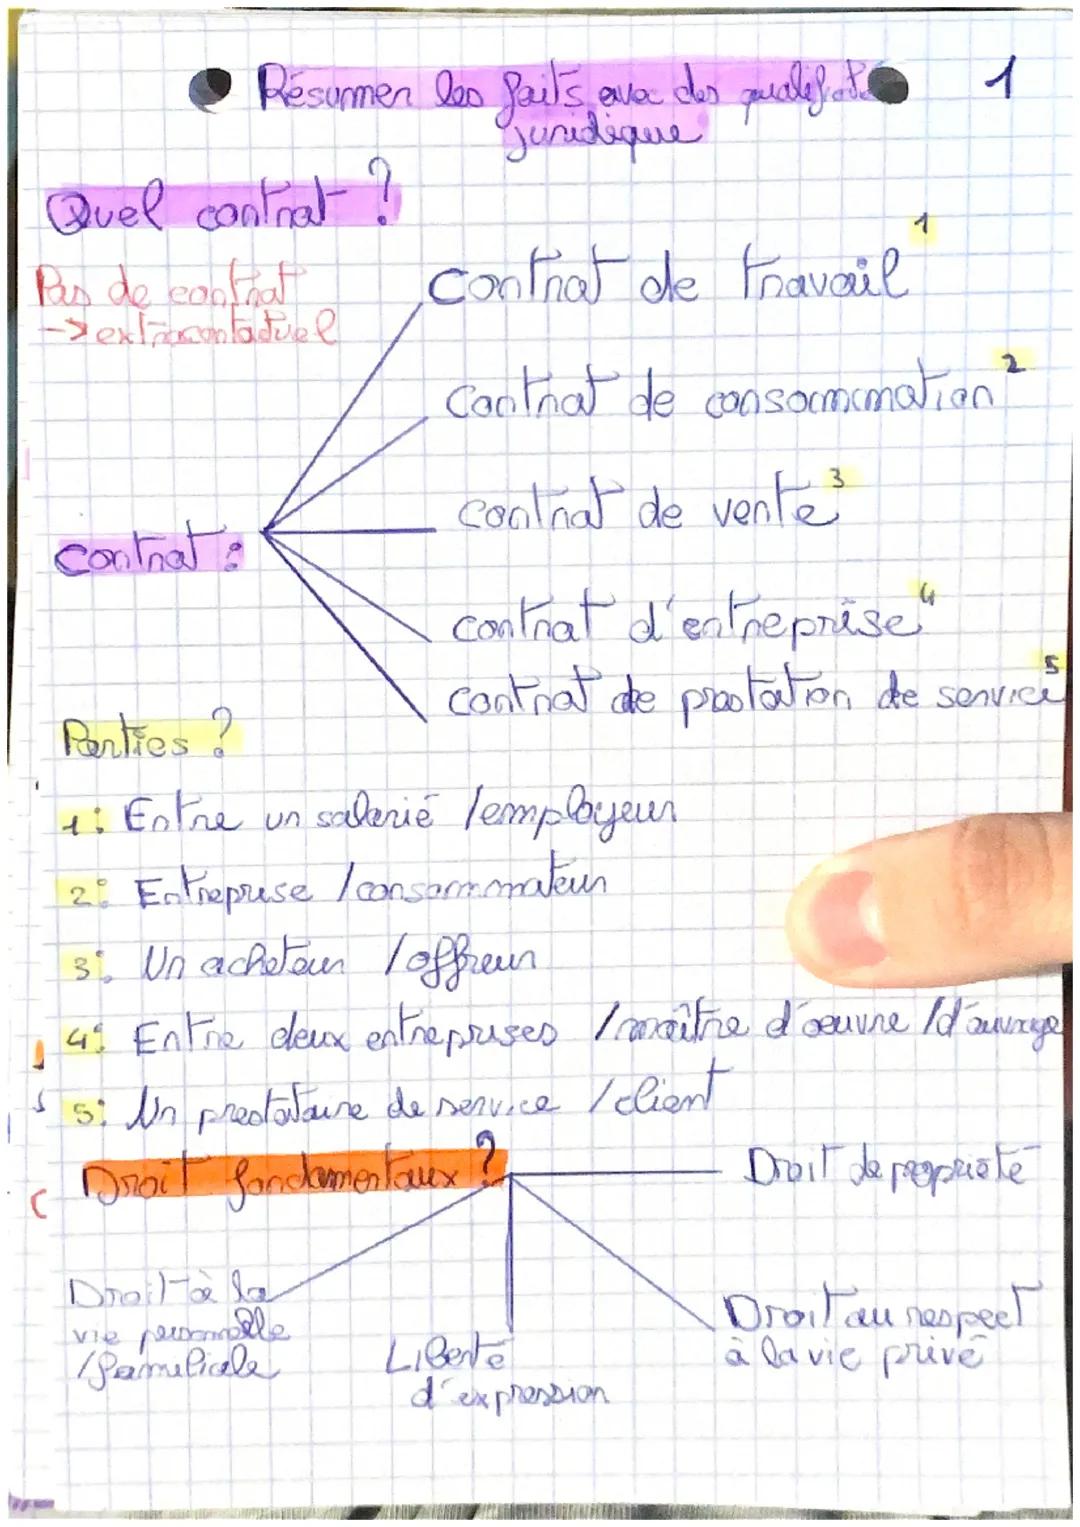 Résumer les faits avec des qualificat 1
juridique
Quel contrat ?
Pas de contrat
-> extracontactuel
Contrat :
contrat de travail 1
contrat de consommation 2
contrat de vente 3
contrat d'entreprise 4
contrat de prestation de service 5
Parties ?
1: Entre un salarié / employeur
2: Entreprise / consommateur
3: Un acheteur / offreur
4: Entre deux entreprises / maître d'œuvre / d'ouvrage
5: Un prestataire de service / client
Droit fondamentaux ?
Droit de propriété
Droit à la
vie personnelle
/ familiale
Liberté
d'expression
Droit au respect
à la vie privé